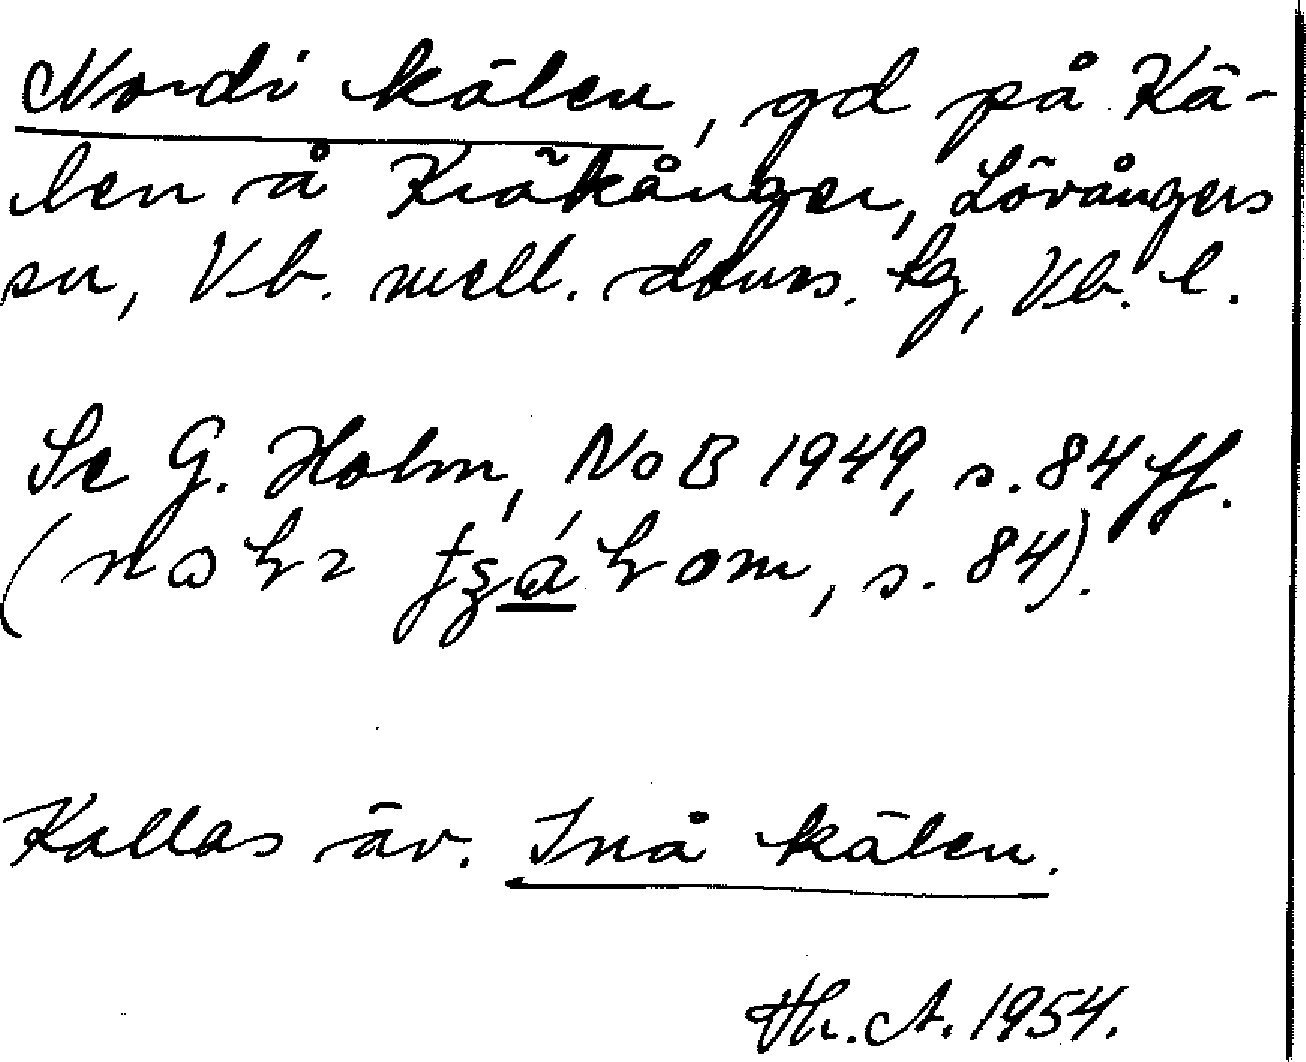 Nordi kälen, gd på Kä-
len å Kräkånger, Lövångers
sn, Vb. mell. doms. tg, Vb. l.
Se G. Holm, NoB 1949, s. 84 ff.
s. 84).
Kallas äv. Inå kälen.
Th. A. 1954.